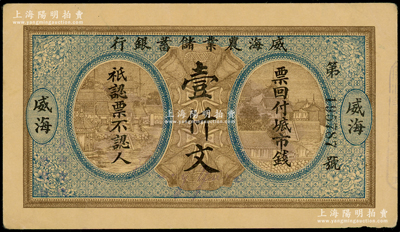 上海陽明拍賣
www.yangmingauction.com
威海農業儲蓄銀行
第
號
壹仟文
票回付城市錢
祇認票不認人
威海
威海
上海陽明拍賣
www.yangmingauction.com